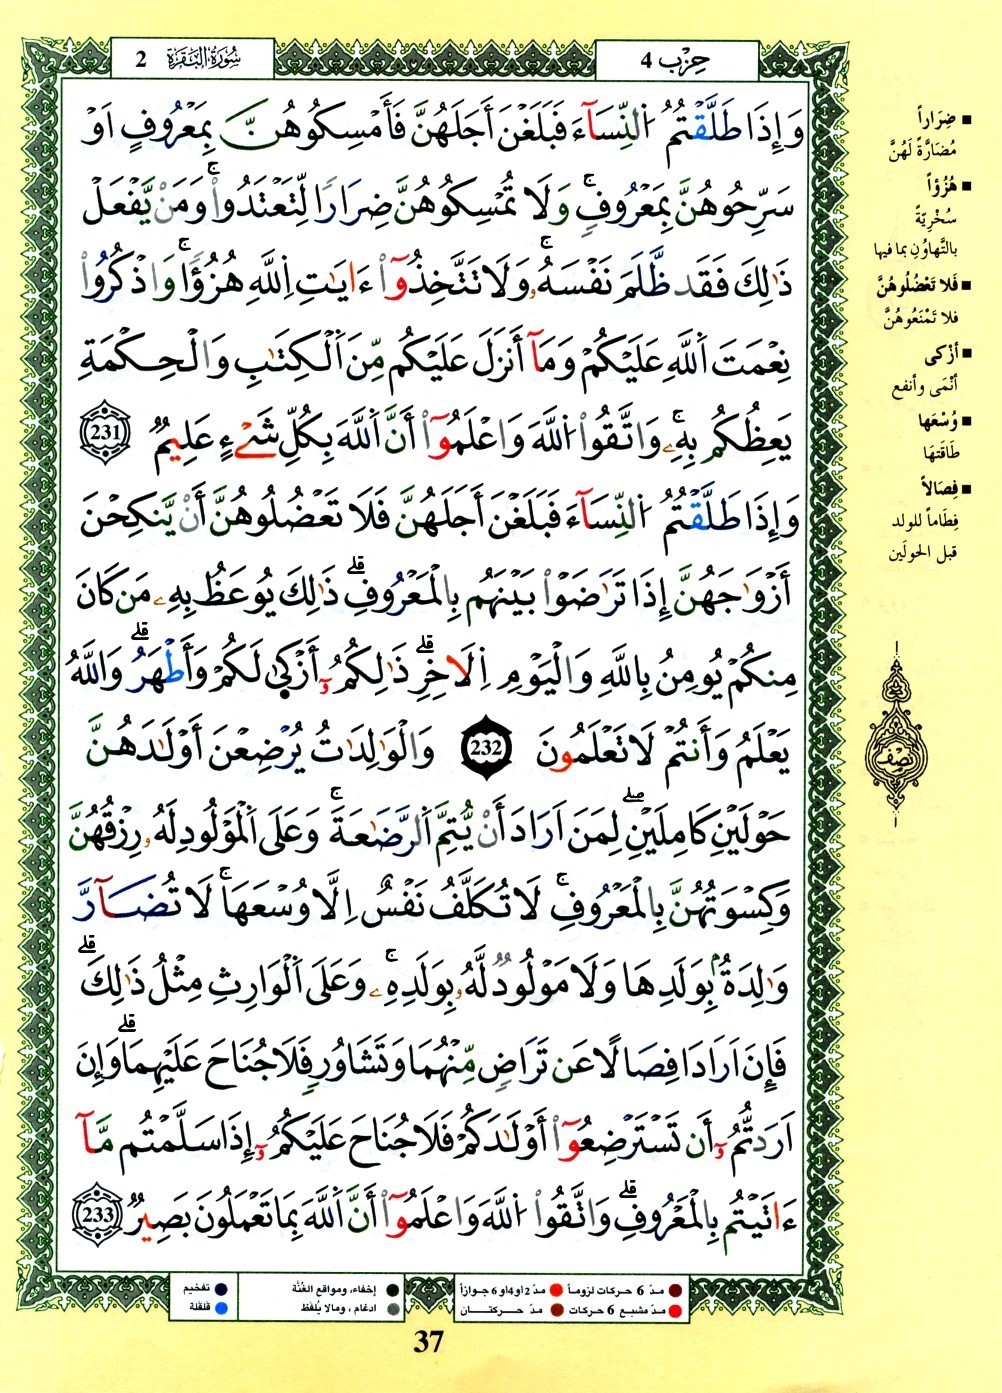 حِزْب 4
سُورَةُ البَقَرَةِ 2
وَإِذَا طَلَّقْتُمُ اُ۬لنِّسَآءَ فَبَلَغْنَ أَجَلَهُنَّ فَأَمْسِكُوهُنَّ بِمَعْرُوفٍ اَوْ
سَرِّحُوهُنَّ بِمَعْرُوفٖۚ وَلَا تُمْسِكُوهُنَّ ضِرَارٗا لِّتَعْتَدُواْۚ وَمَنْ يَّفْعَلْ
ذَٰلِكَ فَقَد ظَّلَمَ نَفْسَهُۥۚ وَلَا تَتَّخِذُوٓاْ ءَايَٰتِ اِ۬للَّهِ هُزُؤٗاۚ وَاذْكُرُواْ
نِعْمَتَ اَ۬للَّهِ عَلَيْكُمْ وَمَآ أَنزَلَ عَلَيْكُم مِّنَ اَ۬لْكِتَٰبِ وَالْحِكْمَةِ
يَعِظُكُم بِهِۦۚ وَاتَّقُواْ اُ۬للَّهَ وَاعْلَمُوٓاْ أَنَّ اَ۬للَّهَ بِكُلِّ شَےْءٍ عَلِيمٞ 231
وَإِذَا طَلَّقْتُمُ اُ۬لنِّسَآءَ فَبَلَغْنَ أَجَلَهُنَّ فَلَا تَعْضُلُوهُنَّ أَنْ يَّنكِحْنَ
أَزْوَٰجَهُنَّ إِذَا تَرَٰضَوْاْ بَيْنَهُم بِالْمَعْرُوفِۗ ذَٰلِكَ يُوعَظُ بِهِۦ مَن كَانَ
مِنكُمْ يُومِنُ بِاللَّهِ وَالْيَوْمِ اِ۬لَاخِرِۗ ذَٰلِكُمُۥٓ أَزْكَىٰ لَكُمْ وَأَطْهَرُۗ وَاللَّهُ
يَعْلَمُ وَأَنتُمْ لَا تَعْلَمُونَ 232 وَالْوَٰلِدَٰتُ يُرْضِعْنَ أَوْلَٰدَهُنَّ
حَوْلَيْنِ كَامِلَيْنِۖ لِمَنَ اَرَادَ أَنْ يُّتِمَّ اَ۬لرَّضَٰعَةَۚ وَعَلَى اَ۬لْمَوْلُودِ لَهُۥ رِزْقُهُنَّ
وَكِسْوَتُهُنَّ بِالْمَعْرُوفِۚ لَا تُكَلَّفُ نَفْسٌ اِلَّا وُسْعَهَاۚ لَا تُضَآرَّ
وَٰلِدَةُۢ بِوَلَدِهَا وَلَا مَوْلُودٞ لَّهُۥ بِوَلَدِهِۦۚ وَعَلَى اَ۬لْوَارِثِ مِثْلُ ذَٰلِكَۗ
فَإِنَ اَرَادَا فِصَالًا عَن تَرَاضٖ مِّنْهُمَا وَتَشَاوُرٖ فَلَا جُنَاحَ عَلَيْهِمَاۗ وَإِنَ
اَرَدتُّمُۥٓ أَن تَسْتَرْضِعُوٓاْ أَوْلَٰدَكُمْ فَلَا جُنَاحَ عَلَيْكُمُۥٓ إِذَا سَلَّمْتُم مَّآ
ءَاتَيْتُم بِالْمَعْرُوفِۗ وَاتَّقُواْ اُ۬للَّهَ وَاعْلَمُوٓاْ أَنَّ اَ۬للَّهَ بِمَا تَعْمَلُونَ بَصِيرٞ 233
■ ضِرَاراً
مُضَارَّةً لَهُنَّ
■ هُزُؤاً
سُخْرِيَّةً
بالتَّهاوُنِ بما فيها
■ فَلا تَعْضُلُوهُنَّ
فلا تَمْنَعُوهُنَّ
■ أَزْكى
أَنْمَى وأنفع
■ وُسْعَها
طَاقَتَهَا
■ فِصَالاً
فِطَاماً للولد
قبل الحولَين
نصف
مدّ 6 حركات لزوماً
مدّ 2 او 4 او 6 جوازاً
مدّ مشبع 6 حركات
مدّ حركتـــان
إخفاء، ومواقع الغُنَّة
ادغام ، ومالا يُلفَظ
تفخيم
قلقلة
37